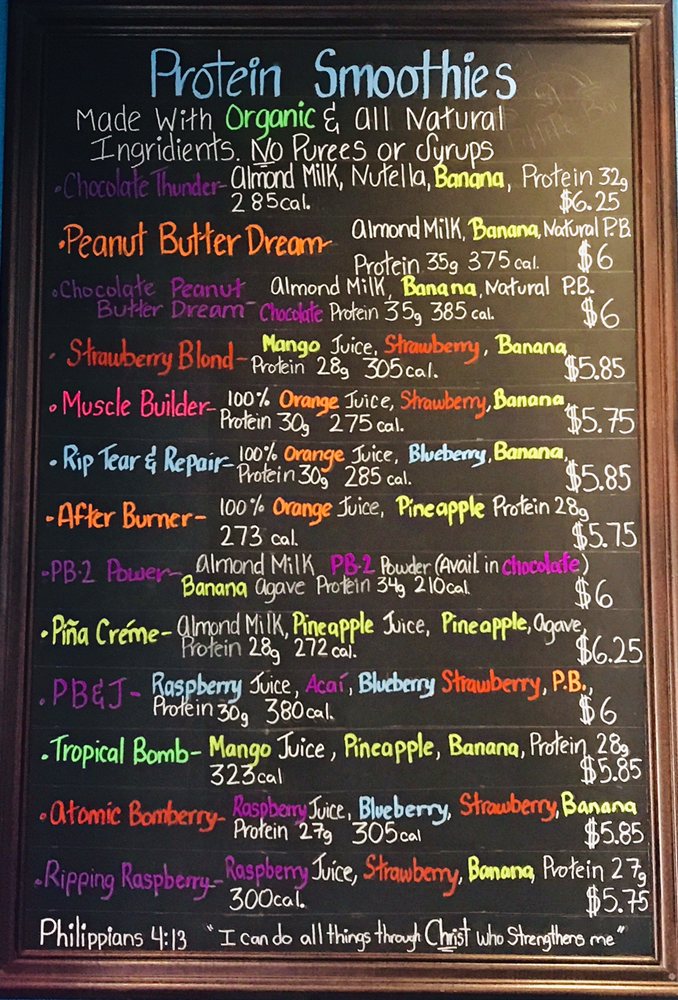 Protein Smoothies
Made With Organic & all Natural
Ingridients. No Purees or Syrups
•Chocolate Thunder- Almond Milk, Nutella, Banana, Protein 32g
285cal. $6.25
•Peanut Butter Dream- Almond Milk, Banana, Natural P.B.
Protein 35g 375 cal. $6
•Chocolate Peanut Almond Milk, Banana, Natural P.B.
Butter Dream- Chocolate Protein 35g 385 cal. $6
•Strawberry Blond- Mango Juice, Strawberry, Banana,
Protein 28g 305cal. $5.85
•Muscle Builder- 100% Orange Juice, Strawberry, Banana,
Protein 30g 275 cal. $5.75
•Rip Tear & Repair- 100% Orange Juice, Blueberry, Banana,
Protein 30g 285 cal. $5.85
•After Burner- 100% Orange Juice, Pineapple Protein 28g
273 cal. $5.75
•PB-2 Power- Almond Milk PB-2 Powder (Avail. in chocolate)
Banana agave Protein 34g 210cal. $6
•Piña Créme- Almond Milk, Pineapple Juice, Pineapple, Agave,
Protein 28g 272 cal. $6.25
•PB&J- Raspberry Juice, Acaí, Blueberry Strawberry, P.B.,
Protein 30g 380cal. $6
•Tropical Bomb- Mango Juice, Pineapple, Banana, Protein 28g
323cal $5.85
•Atomic Bomberry- Raspberry Juice, Blueberry, Strawberry, Banana
Protein 27g 305cal $5.85
•Ripping Raspberry- Raspberry Juice, Strawberry, Banana, Protein 27g
300cal. $5.75
Philippians 4:13 "I can do all things through Christ who Strengthens me"